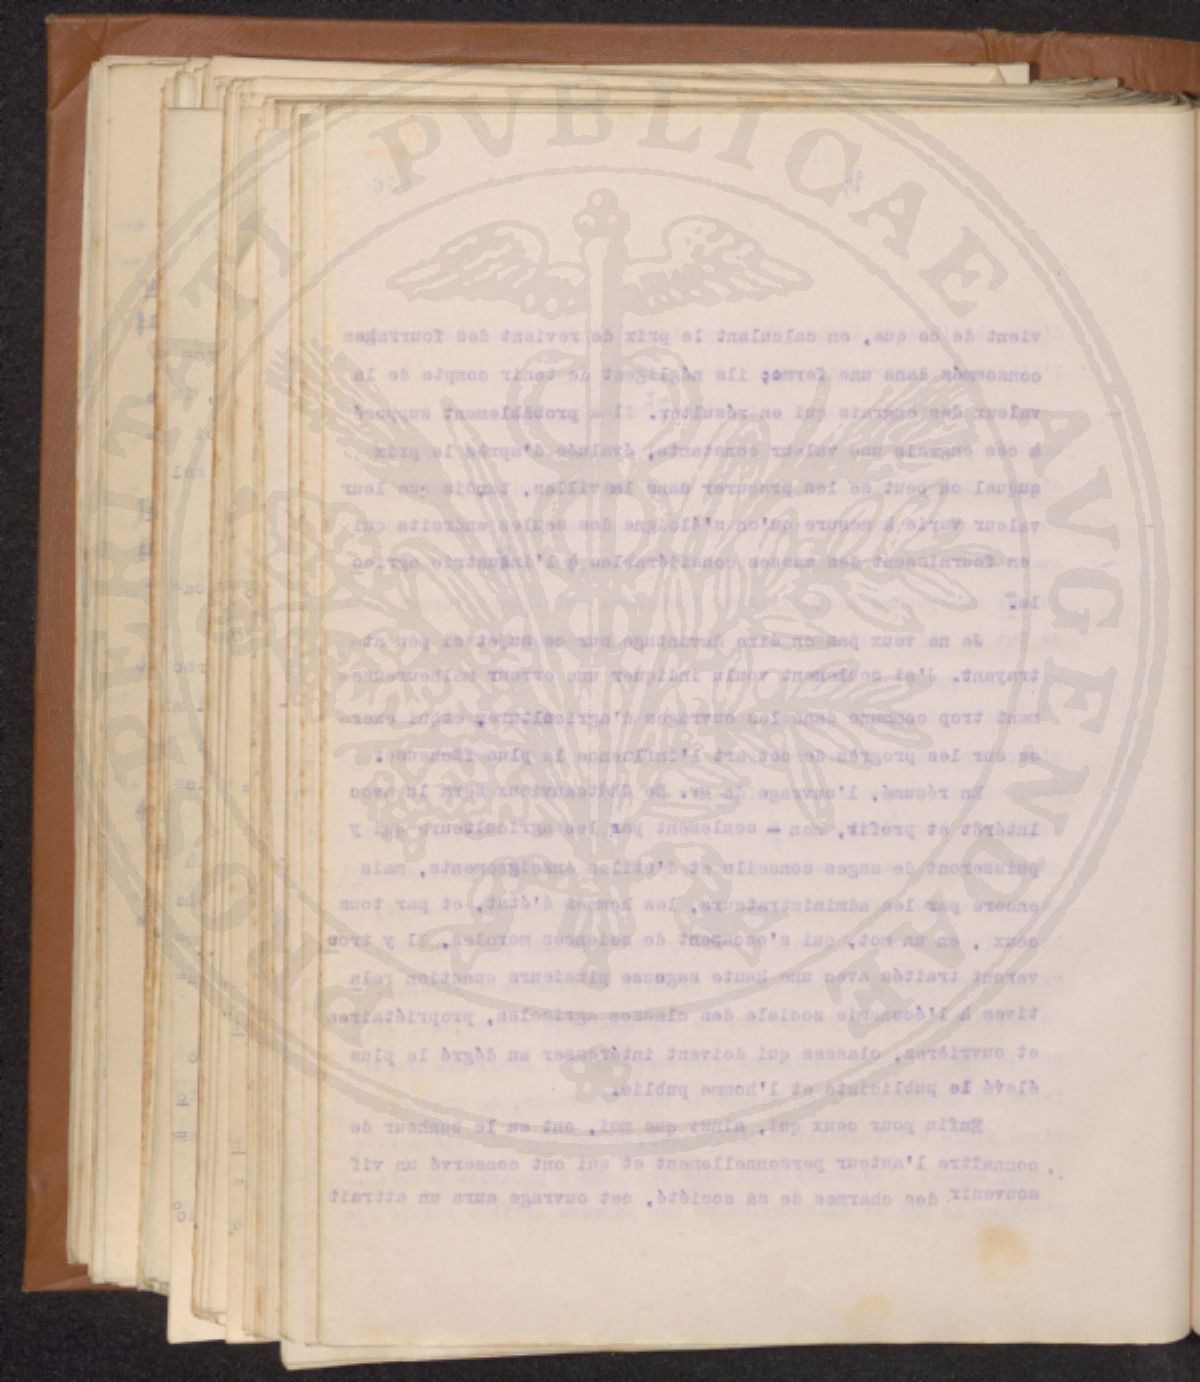 PROSPERITATI PVBLICAE AVGENDAE
vient de ce que, en calculant le prix de revient des fourrages
consommés dans une ferme; ils négligent de tenir compte de la
valeur des engrais qui en résulter. Il a probablement supposé
à ces engrais une valeur constante, évaluée d'après le prix
auquel on peut se les procurer dans le villes, tandis que leur
valeur varie à mesure qu'on s'éloigne des seules endroits qui
en fournissent des masses considérables à l'industrie agrico
le.
Je ne veux pas en dire davantage sur ce sujet si peu at-
trayant. J'ai seulement voulu indiquer une erreur malheureuse-
ment trop commune dans les ouvrages d'agriculture, et qui exer=
ce sur les progrès de cet art l'influence la plus fâcheuse.
En résumé, l'ouvrage de Mr. De Châteauvieux sera lu avec
intérêt et profit, non - seulement par les agriculteurs qui y
puisseront de sages conseils et d'utiles enseignements, mais
encore par les administrateurs, les hommes d'état, et par tous
ceux , en un mot, qui s'occupent de sciences morales. Il y trou
veront traités avec une haute sagesse plusieurs question rela
tives à l'économie sociale des classes agricoles, propriétaires
et ouvrières, classes qui doivent intéresser au dégré le plus
élevé le publiciste et l'homme public.
Enfin pour ceux qui, ainsi que moi, ont eu le bonheur de
connaître l'auteur personnellement et qui ont conservé un vif
souvenir des charmes de sa société, cet ouvrage aura un attrait